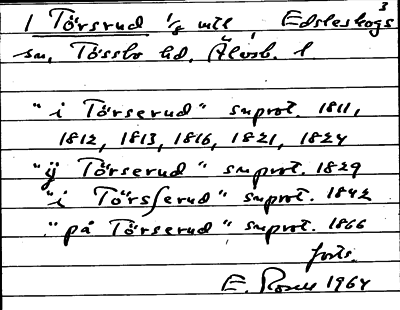 3
1 Törsrud 1/8 mtl Edsleskogs
sn, Tössbo hd, Älvsb. l.
"i Törserud" smprot. 1811,
1812, 1813, 1816, 1821, 1824
"ij Törserud" smprot. 1829
"i Törsserud" smprot. 1842
"på Törserud" smprot. 1866
forts.
E. Rosell 1964